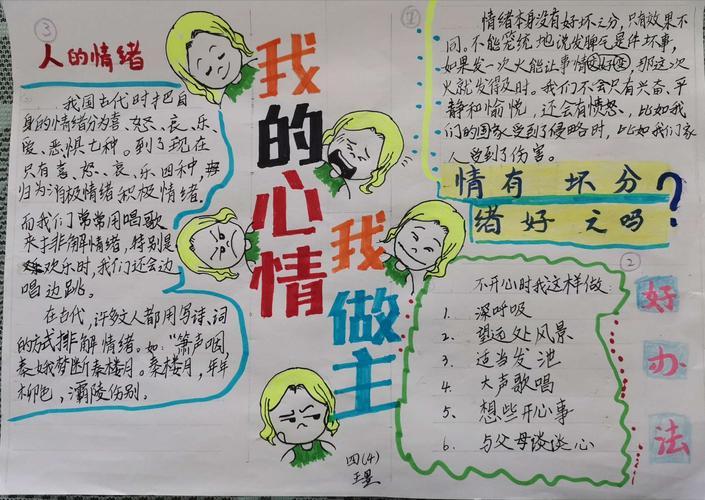 我的心情
我做主
①
情绪本身没有好坏之分,只有效果不
同。不能笼统地说发脾气是件坏事,
如果发一次火能让事情变好,那这次
火就发得及时。我们不会只有兴奋、平
静和愉悦,还会有愤怒、比如我
们的国家受到了侵略时,比如我们家
人受到了伤害。
情有坏分
绪好之吗?
②
好办法
不开心时我这样做:
1. 深呼吸
2. 望远处风景
3. 适当发泄
4. 大声歌唱
5. 想些开心事
6. 与父母谈谈心
③
人的情绪
我国古代时把自
身的情绪分为喜、怒、哀、乐、
爱、恶惧七种。到了现在
只有喜、怒、哀、乐四种,
归为消极情绪积极情绪.
而我们常常用唱歌
来排解情绪,特别是
欢乐时,我们还会边
唱边跳。
在古代,许多文人都用写诗、词
的方式排解情绪。如:“箫声咽,
秦娥梦断秦楼月。秦楼月,年年
柳色,灞陵伤别。
四(4)
王